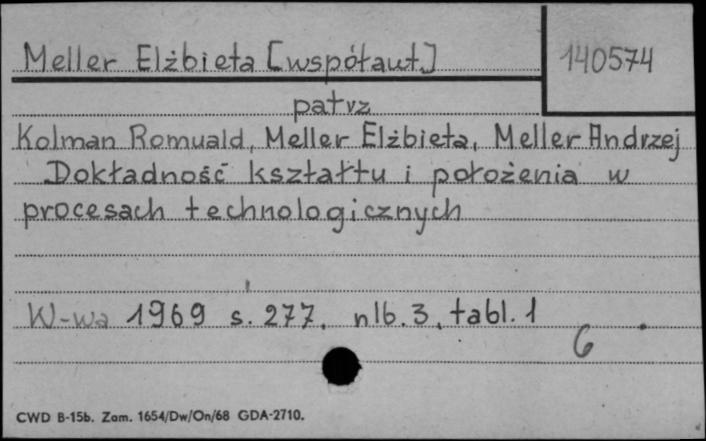 Meller Elżbieta [współaut.]
140574
patrz
Kolman Romuald, Meller Elżbieta, Meller Andrzej
Dokładność kształtu i położenia w
procesach technologicznych
W-wa 1969 s. 277, nlb. 3, tabl. 1
6
CWD B-15b. Zam. 1654/Dw/On/68 GDA-2710.